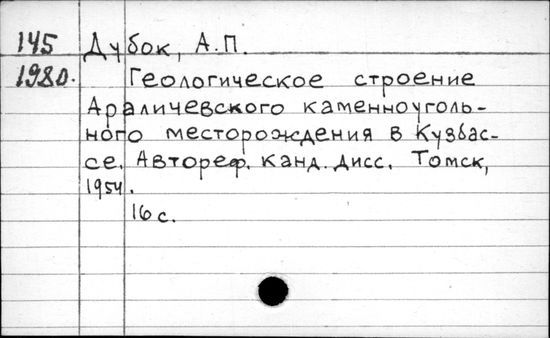 145 Дубок, А.П.
1980. Геологическое строение
Араличевского каменноуголь-
ного месторождения в Кузбас-
се. Автореф. канд. дисс. Томск,
1954.
16 с.